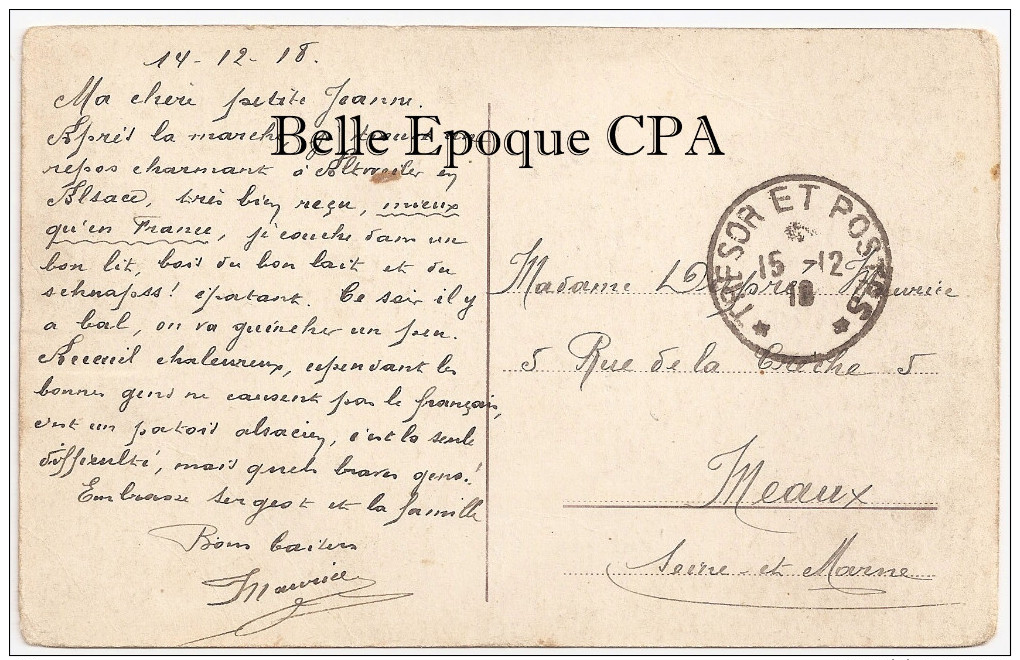 14-12-18.
Ma cheri petite Jeanne.
Après la marche, je trouve un
repos charmant à Altwiller en
Alsace, très bien reçu, mieux
qu'en France, je couche dans un
bon lit, bois du bon lait et du
schnapss! épatant. Ce soir il y
a bal, on va guincher un peu.
Accueil chaleureux, cependant les
bonnes gens ne causent pas le français,
c'est un patois alsacien, c'est la seule
difficulté, mais quels braves gens!
Embrasse Serge et la famille
Bons baisers
Maurice
Belle Epoque CPA
TRESOR ET POSTES
15 -12
18
Madame Maurice
5 Rue de la Crèche 5
Meaux
Seine-et Marne